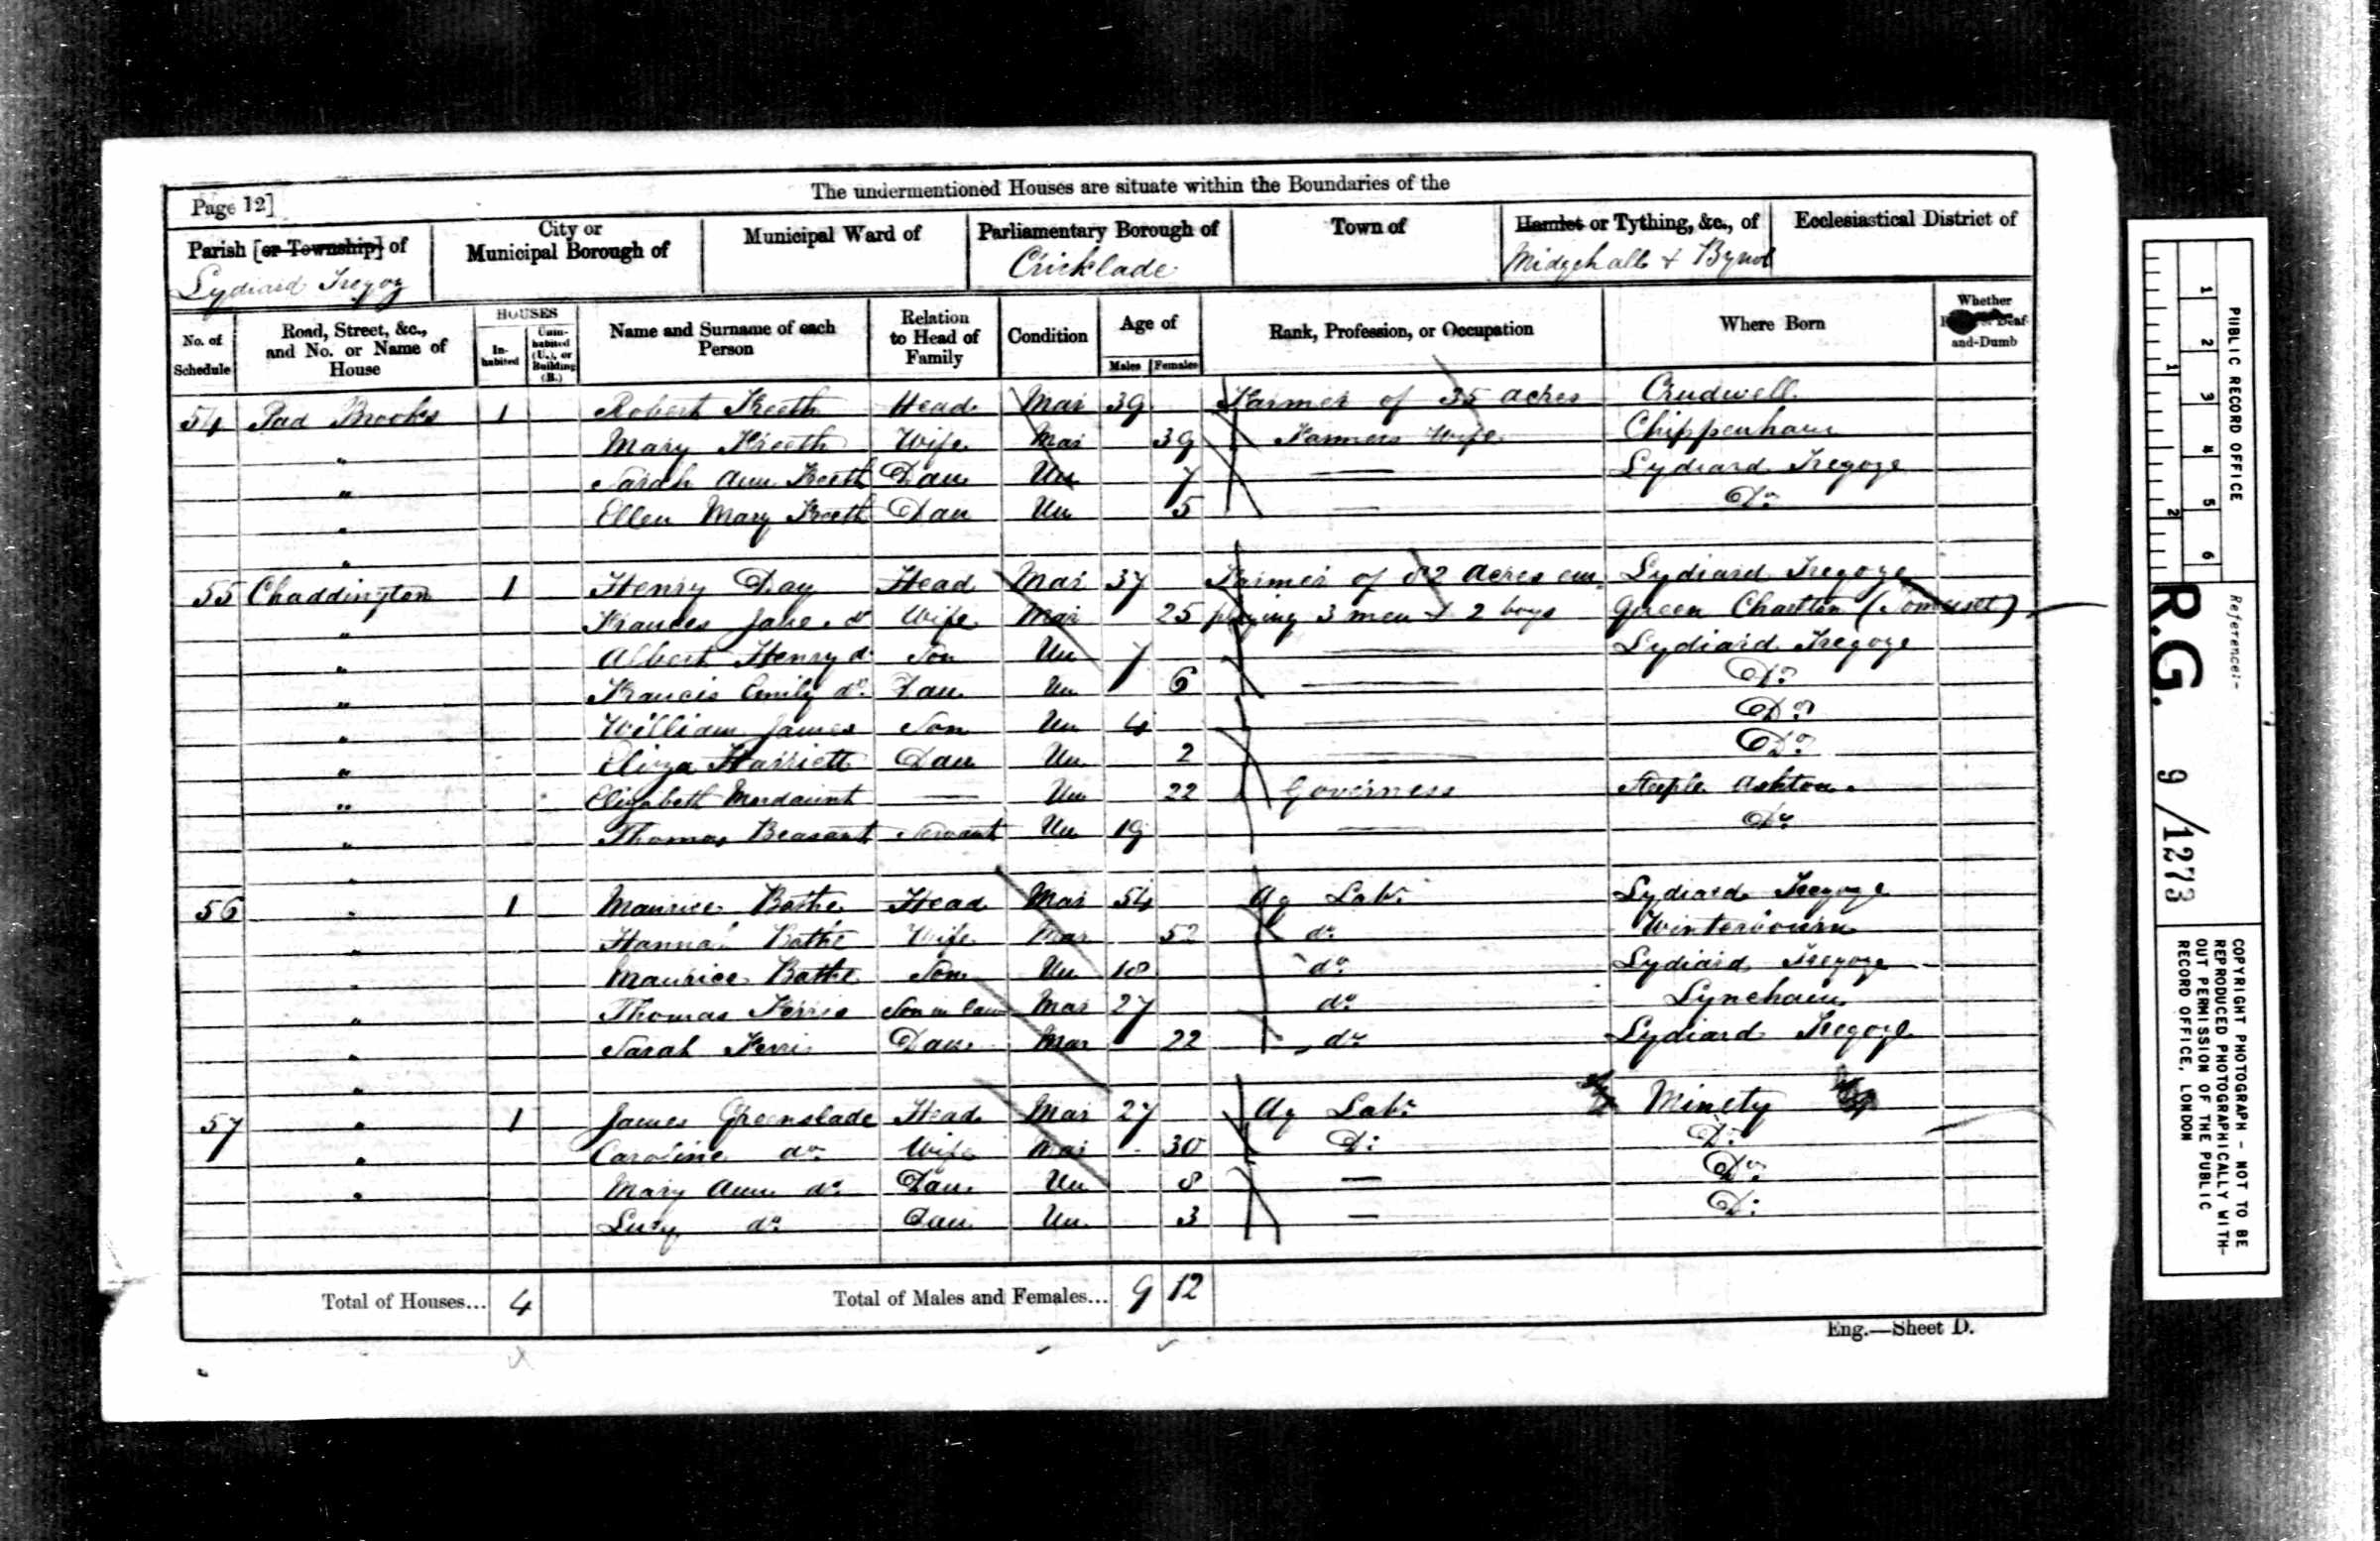 Page 12]
The undermentioned Houses are situate within the Boundaries of the
Parish [or Township] of
Lydiard Tregoz
City or
Municipal Borough of
Municipal Ward of
Parliamentary Borough of
Cricklade
Town of
Hamlet or Tything, &c., of
Midgehall & Bynol
Ecclesiastical District of
No. of Schedule
Road, Street, &c., and No. or Name of House
HOUSES
In-habited
Unin-habited (U.), or Building (B.)
Name and Surname of each Person
Relation to Head of Family
Condition
Age of
Males
Females
Rank, Profession, or Occupation
Where Born
Whether Deaf-and-Dumb
54 Brooks 1 Robert Head Mar 39 Farmer of 35 acres Crudwell
" Mary Wife Mar 39 Farmers Wife Chippenham
" Sarah Ann Dau Un 7 — Lydiard Tregoze
" Ellen Mary Dau Un 5 — Do
"
55 Chaddington 1 Henry Day Head Mar 37 Farmer of 82 Acres em Lydiard Tregoze
" Frances Jane do Wife Mar 25 ploying 3 men & 2 boys Queen Charlton (Somerset)
" Albert Henry do Son Un 7 — Lydiard Tregoze
" Francis Emily do Dau Un 6 — Do
" William James Son Un 4 — Do
" Eliza Harriett Dau Un 2 — Do
" Elizabeth Mordaunt — Un 22 Governess Steeple Ashton
" Thomas Beasant Servant Un 19 — Do
"
56 " 1 Maurice Bathe Head Mar 54 Ag Labr Lydiard Tregoze
" Hannah Bathe Wife Mar 52 do Winterbourn
" Maurice Bathe Son Un 18 do Lydiard Tregoze
" Thomas Ferris Son in law Mar 27 do Lyneham
" Sarah Ferris Dau Mar 22 do Lydiard Tregoze
"
57 " 1 James Greenslade Head Mar 27 Ag Labr Minety
" Caroline do Wife Mar 30 Do Do
" Mary Ann do Dau Un 8 — Do
Lucy do Dau Un 3 — Do
Total of Houses... 4
Total of Males and Females... 9 12
Eng.—Sheet D.
PUBLIC RECORD OFFICE
1 2 3 4 5 6
1 2
Reference:-
R.G. 9/1273
COPYRIGHT PHOTOGRAPH - NOT TO BE
REPRODUCED PHOTOGRAPHICALLY WITH-
OUT PERMISSION OF THE PUBLIC
RECORD OFFICE, LONDON